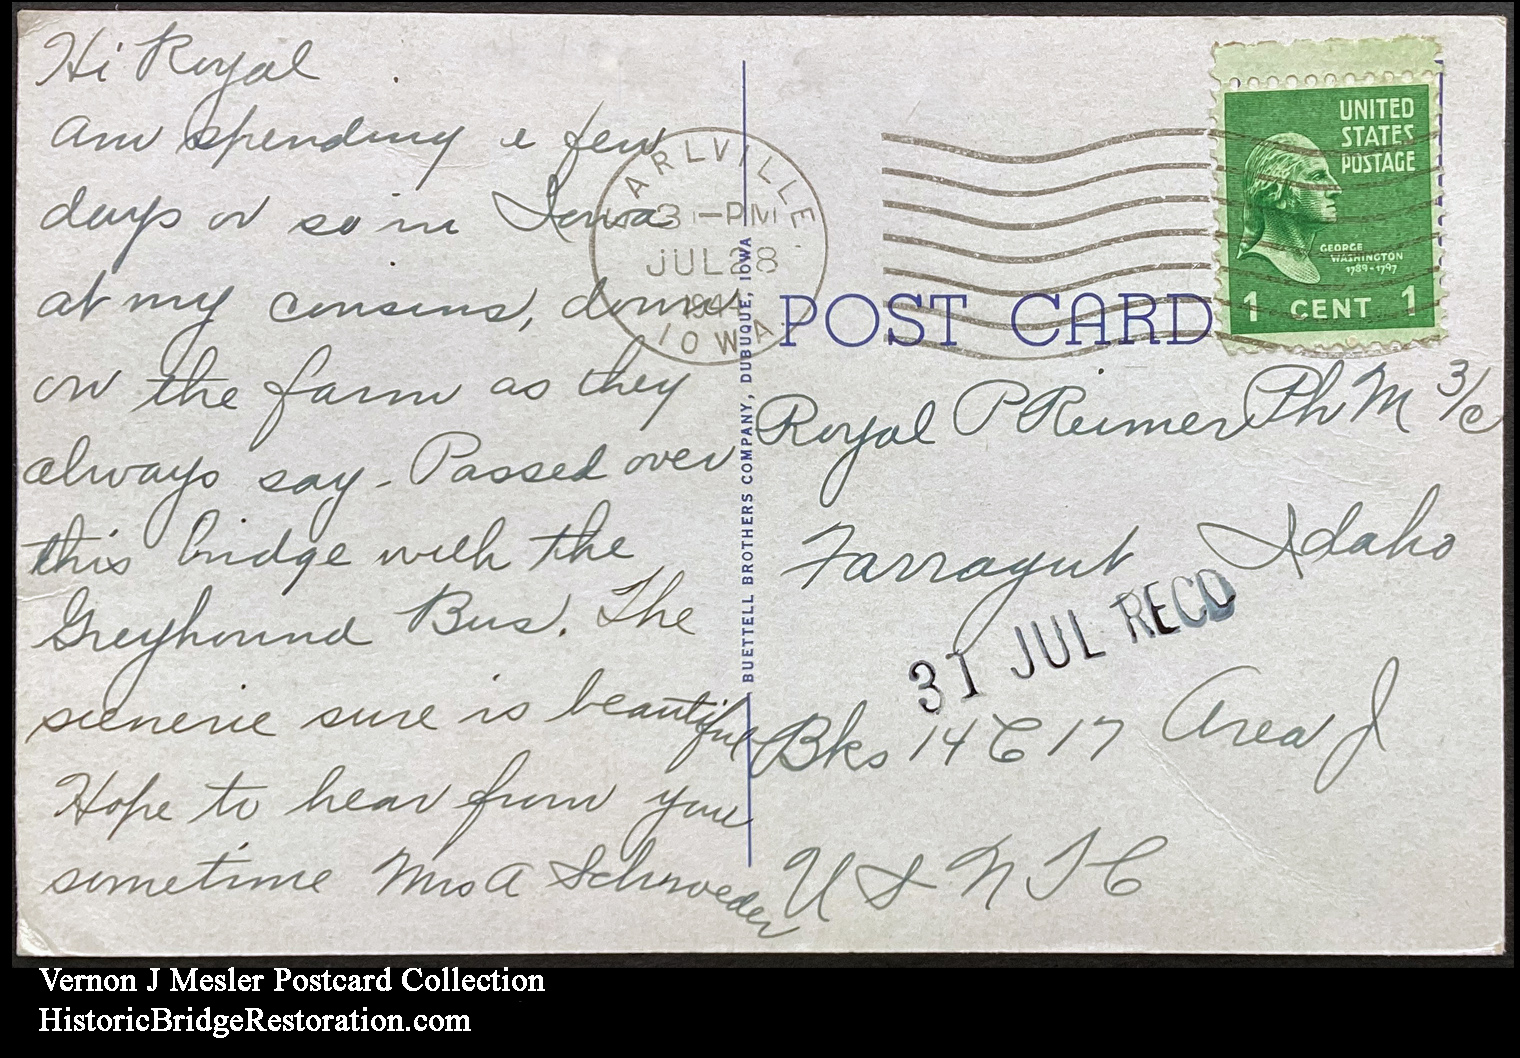 Hi Royal
am spending a few
days or so in Iowa
at my cousins, down
on the farm as they
always say - Passed over
this bridge with the
Greyhound Bus. The
scenerie sure is beautiful
Hope to hear from you
sometime Mrs A Schroeder
ARLVILLE
3 - PM
JUL 28
1944
IOWA
BUETTELL BROTHERS COMPANY, DUBUQUE, IOWA
POST CARD
UNITED
STATES
POSTAGE
GEORGE
WASHINGTON
1789-1797
1 CENT 1
Royal P Reimer Ph M 3/c
Farragut Idaho
31 JUL RECD
Bks 14 C 17 Area J
U S N T C
Vernon J Mesler Postcard Collection
HistoricBridgeRestoration.com